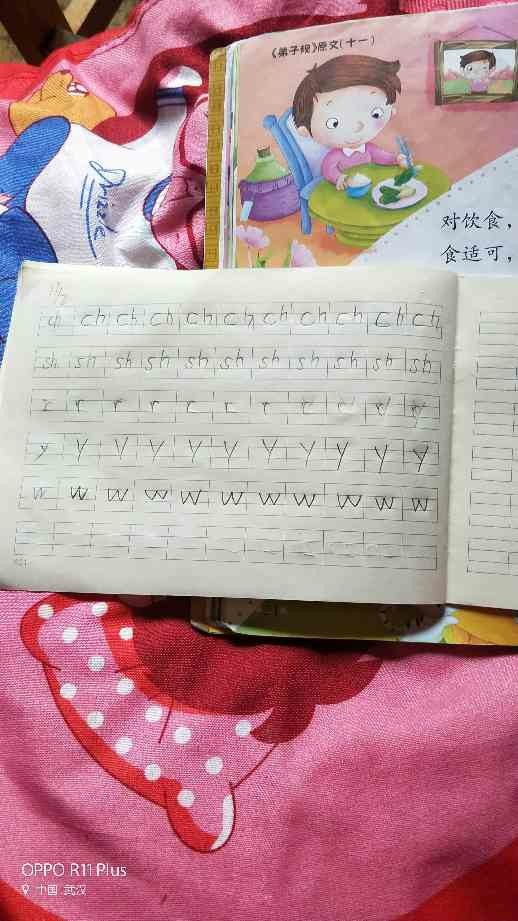 《弟子规》原文(十一)
对饮食，
食适可，
ch ch ch ch ch ch ch ch ch ch ch
sh sh sh sh sh sh sh sh sh sh sh
r r r r r r r
y y y y y y y y y y y
w w w w w w w w w w w
OPPO R11 Plus
中国 武汉